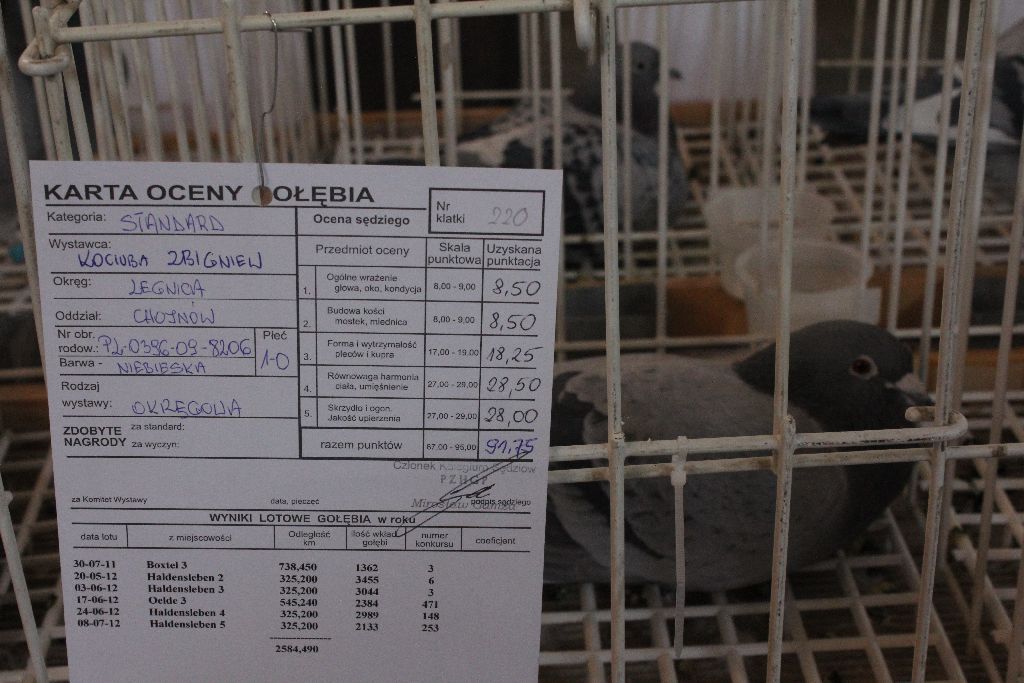 KARTA OCENY GOŁĘBIA
Kategoria: STANDARD
Wystawca:
KOCIUBA ZBIGNIEW
Okręg: LEGNICA
Oddział: CHOJNÓW
Nr obr.
rodow.: PL-0396-09-8206
Płeć
1-0
Barwa - NIEBIESKA
Rodzaj
wystawy: OKRĘGOWA
ZDOBYTE NAGRODY
za standard:
za wyczyn:
Ocena sędziego
Nr klatki 220
Przedmiot oceny Skala punktowa Uzyskana punktacja
1. Ogólne wrażenie głowa, oko, kondycja 8,00 - 9,00 8,50
2. Budowa kości mostek, miednica 8,00 - 9,00 8,50
3. Forma i wytrzymałość pleców i kupra 17,00 - 19,00 18,25
4. Równowaga harmonia ciała, umięśnienie 27,00 - 29,00 28,50
5. Skrzydło i ogon. Jakość upierzenia 27,00 - 29,00 28,00
razem punktów 87,00 - 95,00 91,75
Członek Kolegium Sędziów
PZHGP
Mirosław
za Komitet Wystawy data, pieczęć podpis sędziego
WYNIKI LOTOWE GOŁĘBIA w roku
data lotu z miejscowości Odległość km ilość wkład gołębi numer konkursu coeficjent
30-07-11 Boxtel 3 738,450 1362 3
20-05-12 Haldensleben 2 325,200 3455 6
03-06-12 Haldensleben 3 325,200 3044 3
17-06-12 Oelde 3 545,240 2384 471
24-06-12 Haldensleben 4 325,200 2989 148
08-07-12 Haldensleben 5 325,200 2133 253
2584,490